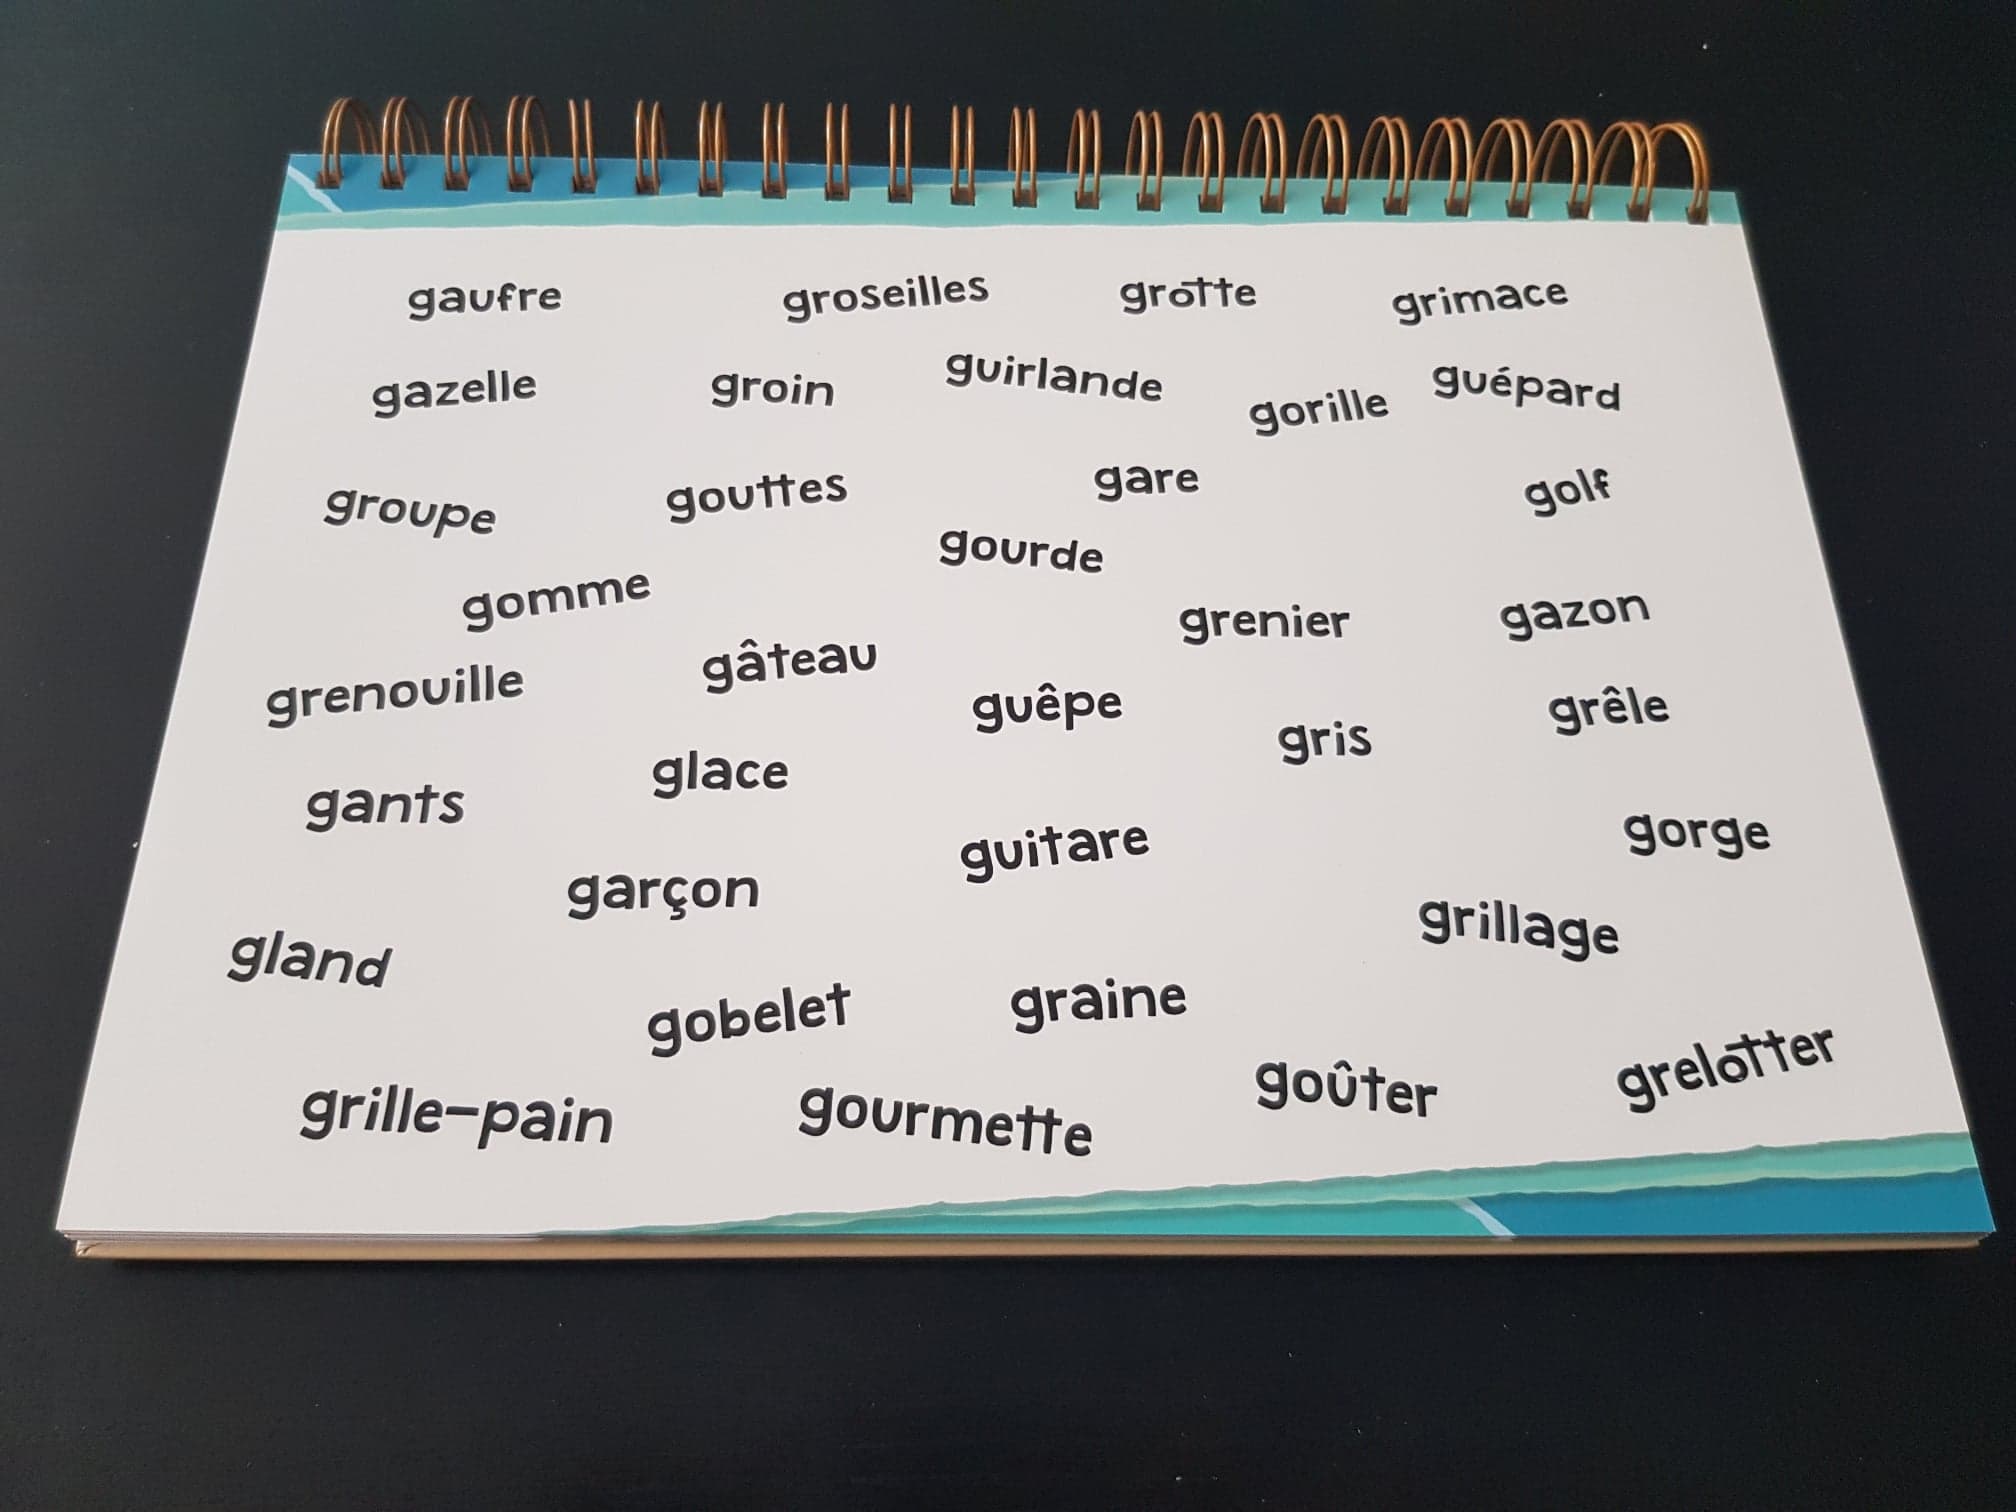 gaufre groseilles grotte grimace
gazelle groin guirlande gorille guépard
groupe gouttes gare golf
gomme gourde grenier gazon
grenouille gâteau guêpe gris grêle
gants glace guitare gorge
gland garçon grillage
gobelet graine
grille-pain gourmette goûter grelotter